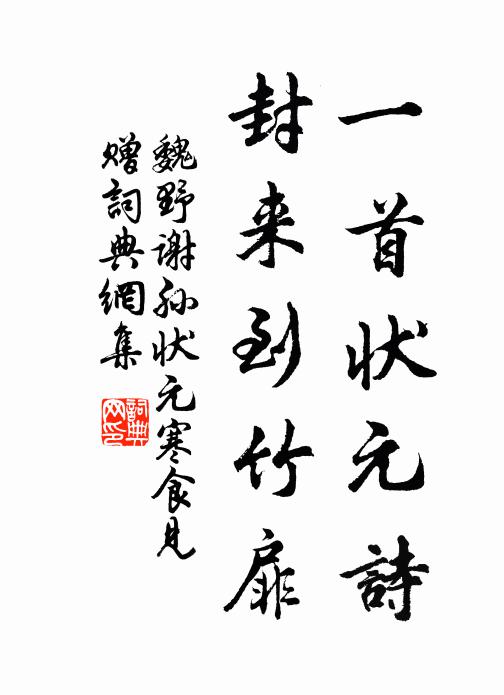 一首状元詩
封来到竹扉
魏野谢孙状元寒食見
赠詞典網集
詞典网印